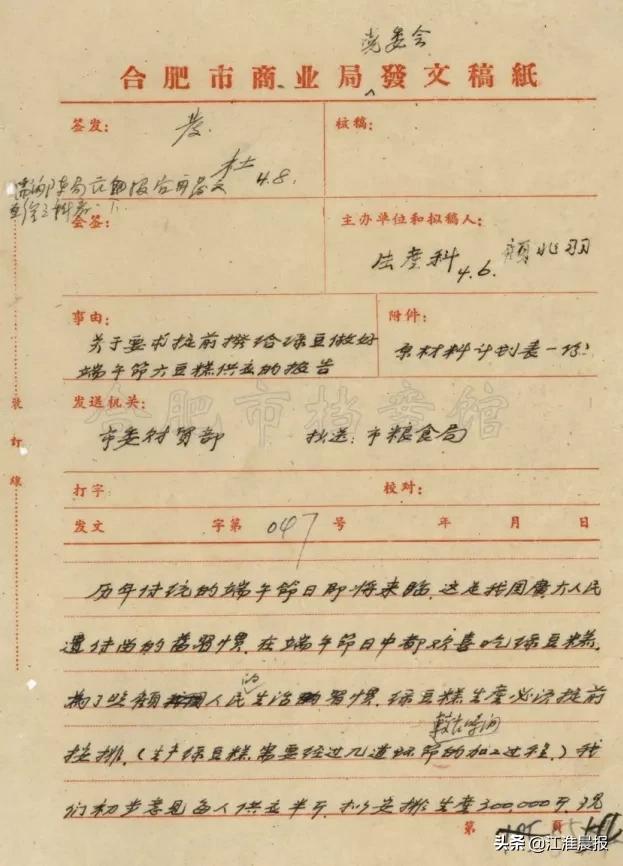 党委会
合肥市商业局發文稿紙
签发：
发
杜 4.8.
核稿：
会签：
主办单位和拟稿人：
生产科 4.6. 顧兆羽
事由：
关于要求提前撥给绿豆做好
端午節六豆糕供应的报告
附件：
原材料计划表一份
发送机关：
市委财贸部 抄送：市粮食局
合肥市档案馆
打字
校对：
发文 字第 047 号 年 月 日
装訂線
历年传统的端午節日即将来臨，这是我国廣大人民
遺传尚的舊習慣，在端午節日中都欢喜吃绿豆糕，
為了照顧人民的生活習慣，绿豆糕生產必须提前
較长時间
按排，（生产绿豆糕需要经过几道环節的加工过程，）我
们初步意见每人供应半斤，拟安排生產300,000斤，现
第 頁
头条 @江淮晨报